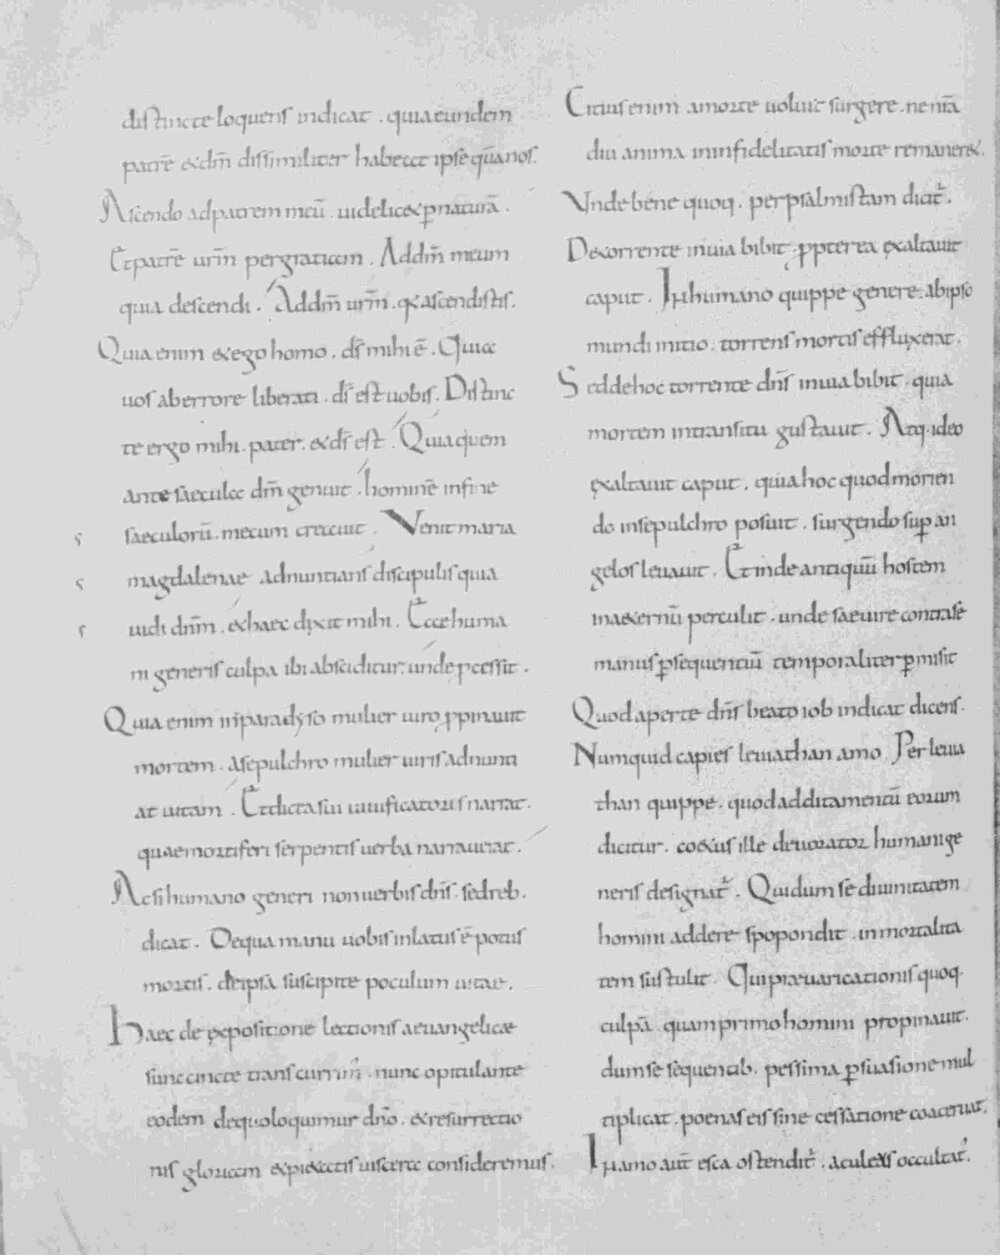 distincte loquens indicat . quia eundem
patrē & dm̄ dissimiliter habeat ipse quā nos .
Ascendo ad patrem meū . uidelicet p̱ naturā .
Et patrē urm̄ per gratiam . Ad dm̄ meum
quia descendi . Ad dm̄ urm̄ . quia ascendistis .
Quia enim & ego homo . ds̄ mihi ē . Quia
uos ab errore liberati . ds̄ est uobis . Distinc
te ergo mihi . pater . & ds̄ est . Quia quem
ante saecula dm̄ genuit . hominē in fine
saeculorū . mecum creauit . Venit maria
magdalenae adnuntians discipulis quia
uidi dnm̄ . & haec dixit mihi . Ecce huma
ni generis culpa ibi absciditur . unde pcessit .
Quia enim in paradyso mulier uiro ppinauit
mortem . a sepulchro mulier uiris adnunti
at uitam . Et dicta sui uiuificatoris narrat .
quae mortiferi serpentis uerba narrauerat .
Ac si humano generi non uerbis dns̄ . sed reb .
dicat . De qua manu uobis inlatus ē potus
mortis . de ipsa suscipite poculum uitae .
Haec de expositione lectionis aeuangelicae
succincte transcurrim̉ . nunc opitulante
eodem de quo loquimur dn̄o . & resurrectio
nis gloriam & pietatis uiscera consideremus .
Citius enim a morte uoluit surgere . ne n̄ra
diu anima in infidelitatis morte remaner& .
Vnde bene quoq . per psalmistam dicit̉ .
De torrente in uia bibit . ppterea exaltauit
caput . In humano quippe genere . ab ipso
mundi initio . torrens mortis effluxerat .
Sed de hoc torrente dns̄ in uia bibit . quia
mortem in transitu gustauit . Atq . ideo
exaltauit caput . quia hoc quod morien
do in sepulchro posuit . surgendo sup̱ an
gelos leuauit . Et inde antiquū hostem
in aeternū perculit . unde saeuire contra sē
manus p̱sequentiū temporaliter p̱misit
Quod aperte dns̄ beato iob indicat dicens .
Numquid capies leuiathan amo . Per leuia
than quippe . quod additamentū eorum
dicitur . coetus ille deuorator humani ge
neris designat̉ . Qui dum se diuinitatem
homini addere spopondit . inmortalita
tem sustulit . Qui praeuaricationis quoq .
culpā . quam primo homini propinauit .
dum se sequentib . pessima p̱suasione mul
tiplicat . poenas eis sine cessatione coaceruat .
In amo aut̄ esca ostendit̉ . aculeus occultat̉ .